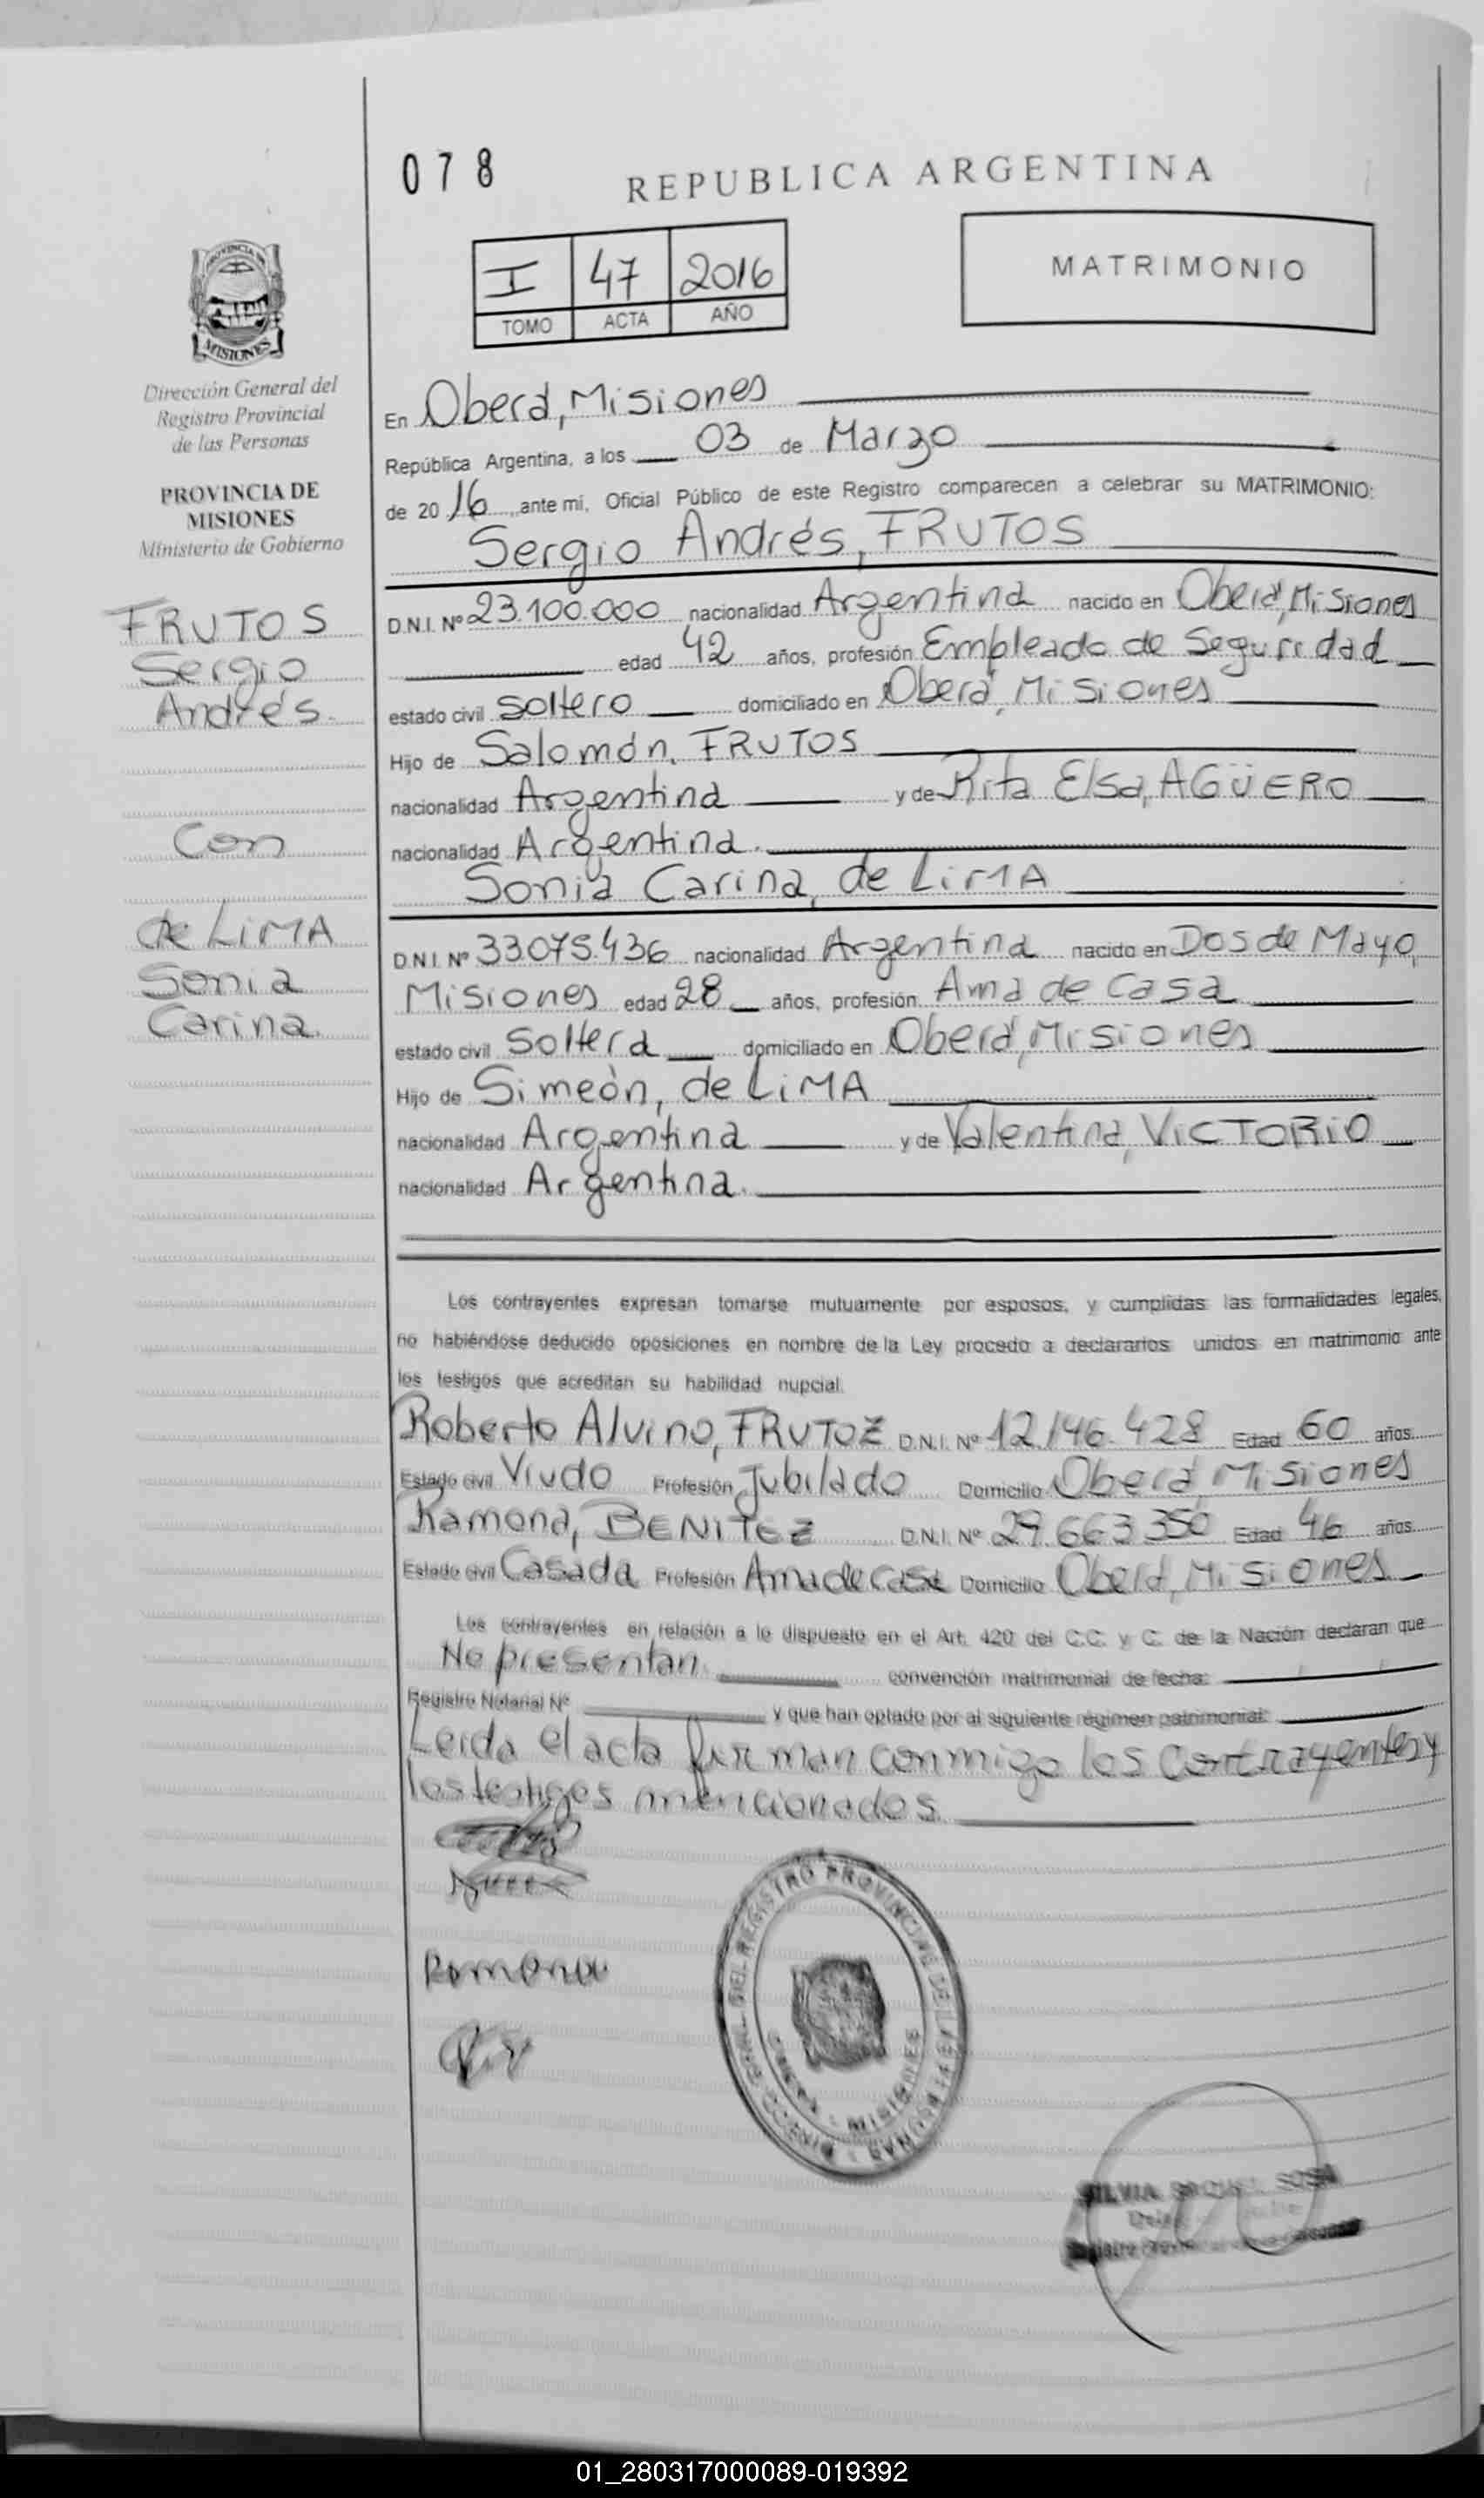 078
REPUBLICA ARGENTINA
I 47 2016
TOMO ACTA AÑO
MATRIMONIO
PROVINCIA DE
MISIONES
Dirección General del
Registro Provincial
de las Personas
PROVINCIA DE
MISIONES
Ministerio de Gobierno
FRUTOS
Sergio
Andrés.
Con
de LiMA
Sonia
Carina.
En Oberá, Misiones
República Argentina, a los 03 de Marzo
de 20 16 , ante mi, Oficial Público de este Registro comparecen a celebrar su MATRIMONIO:
Sergio Andrés, FRUTOS
D.N.I. Nº 23.100.000 nacionalidad Argentina nacido en Oberá, Misiones
edad 42 años, profesión Empleado de Seguridad
estado civil soltero domiciliado en Oberá, Misiones
Hijo de Salomón, FRUTOS
nacionalidad Argentina y de Rita Elsa, AGÜERO
nacionalidad Argentina.
Sonia Carina, de LiMA
D.N.I. Nº 33.075.436 nacionalidad Argentina nacido en Dos de Mayo,
Misiones edad 28 años, profesión Ama de casa
estado civil soltera domiciliado en Oberá, Misiones
Hijo de Simeòn, de LiMA
nacionalidad Argentina y de Valentina, ViCTORiO
nacionalidad Argentina.
Los contrayentes expresan tomarse mutuamente por esposos, y cumplidas las formalidades legales,
no habiéndose deducido oposiciones en nombre de la Ley procedo a declararlos unidos en matrimonio ante
los testigos que acreditan su habilidad nupcial.
Roberto Alvino, FRUTOZ D.N.I. Nº 12.146.428 Edad 60 años
Estado civil Viudo Profesión Jubilado Domicilio Oberá Misiones
Ramona, BENiTEZ D.N.I. Nº 29.663.350 Edad 46 años
Estado civil Casada Profesión Ama de casa Domicilio Oberá, Misiones
Los contrayentes en relación a lo dispuesto en el Art. 420 del C.C. y C. de la Nación declaran que
No presentan. convención matrimonial de fecha:
Registro Notarial Nº y que han optado por al siguiente régimen patrimonial:
Leida el acta firman conmigo los contrayentes y
los testigos mencionados.
Ramona
DIREC. GRAL. DEL REGISTRO PROVINCIAL DE LAS PERSONAS
MISIONES
SILVIA RAQUEL SOSA
01_280317000089-019392